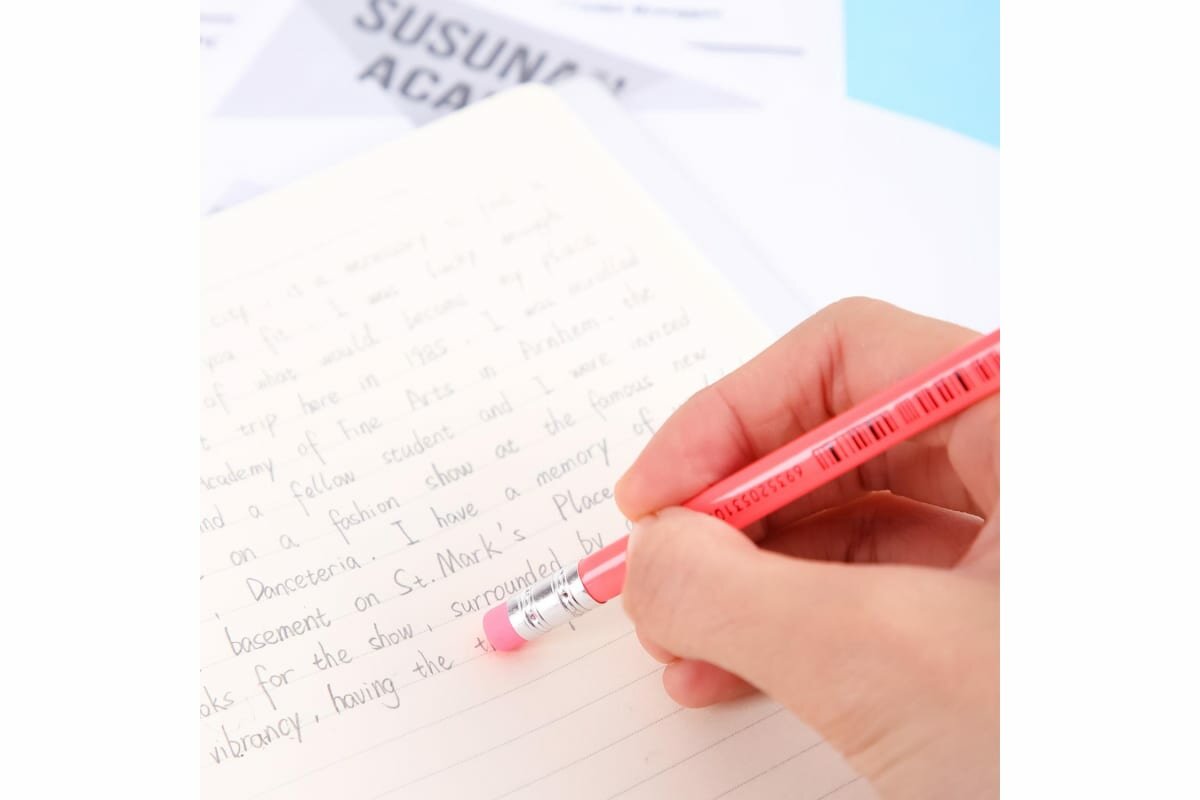 SUSUNA
ACA
city. is a necessary
you fit. I was lucky enough
of what would become my place
t trip here in 1985. I was enrolled
Academy of Fine Arts in Arnhem. the
nd a fellow student and I were invited
on a fashion show at the famous new
, Danceteria. I have a memory of
basement on St. Mark's Place
oks for the show, surrounded by
vibrancy, having the t
6935205310